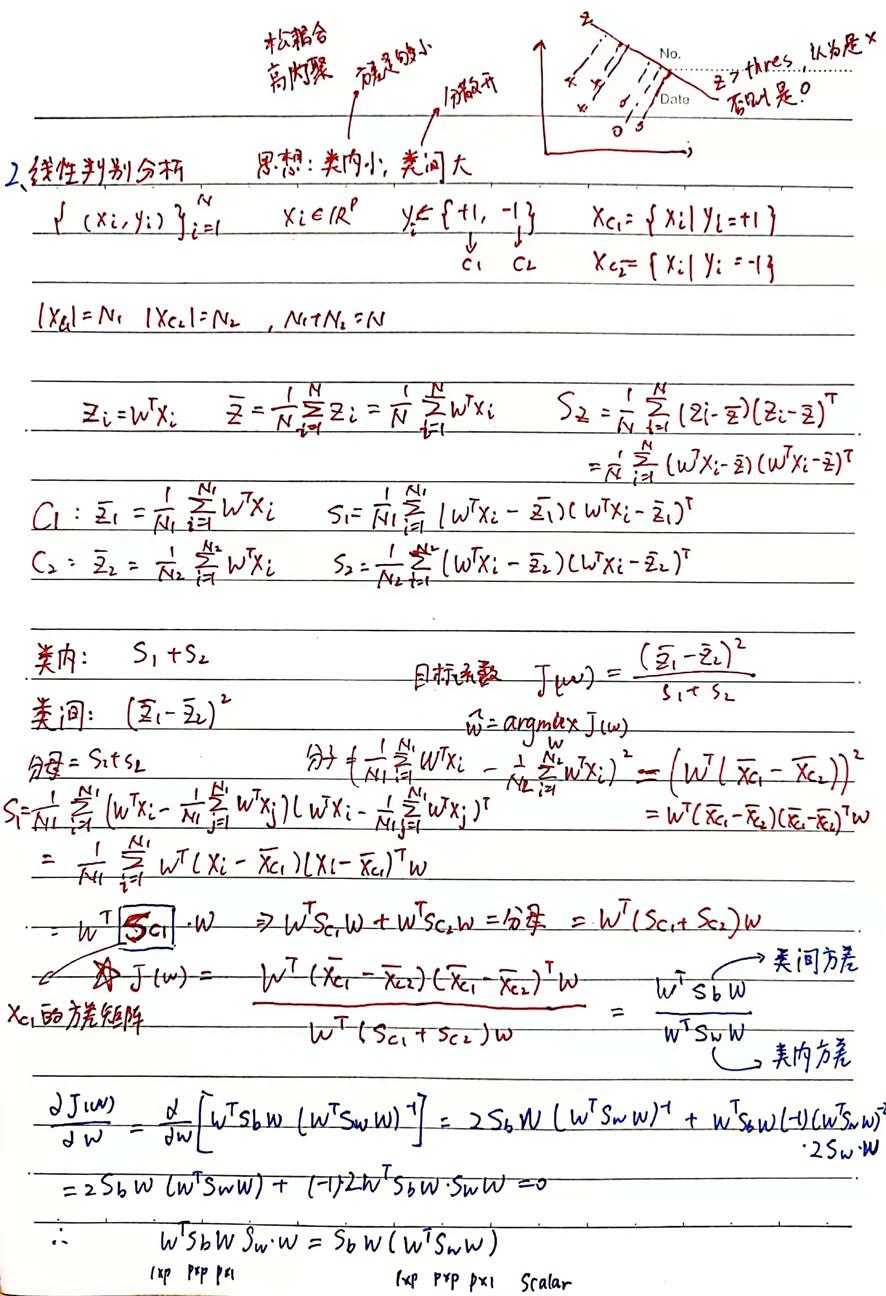 松耦合
高内聚
方差足够小
分散开
z
No.
Date
z > thres, 认为是x
否则是o
2、线性判别分析 思想: 类内小, 类间大
{(xi, yi)}_{i=1}^{N} xi∈ℝ^p yi∈{+1, -1} X_{C1}={xi|yi=+1}
C1 C2 X_{C2}={xi|yi=-1}
|X_{C1}|=N1 |X_{C2}|=N2 , N1+N2=N
Zi=W^T xi Z̄=1/N ∑_{i=1}^{N} Zi = 1/N ∑_{i=1}^{N} W^T xi S_Z = 1/N ∑_{i=1}^{N} (Zi-Z̄)(Zi-Z̄)^T
= 1/N ∑_{i=1}^{N} (W^T xi-Z̄)(W^T xi-Z̄)^T
C1: Z̄1 = 1/N1 ∑_{i=1}^{N1} W^T xi S1 = 1/N1 ∑_{i=1}^{N1} (W^T xi - Z̄1)(W^T xi - Z̄1)^T
C2: Z̄2 = 1/N2 ∑_{i=1}^{N2} W^T xi S2 = 1/N2 ∑_{i=1}^{N2} (W^T xi - Z̄2)(W^T xi - Z̄2)^T
类内: S1+S2
目标函数 J(w) = (Z̄1-Z̄2)^2 / (S1+S2)
类间: (Z̄1-Z̄2)^2
ŵ = argmax_w J(w)
分母=S1+S2 分子=(1/N1 ∑_{i=1}^{N1} W^T xi - 1/N2 ∑_{i=1}^{N2} W^T xi)^2 = (W^T(X̄_{C1} - X̄_{C2}))^2
S1=1/N1 ∑_{i=1}^{N1} (W^T xi - 1/N1 ∑_{j=1}^{N1} W^T xj)(W^T xi - 1/N1 ∑_{j=1}^{N1} W^T xj)^T = W^T(X̄_{C1}-X̄_{C2})(X̄_{C1}-X̄_{C2})^T W
= 1/N1 ∑_{i=1}^{N1} W^T(xi - X̄_{C1})(xi - X̄_{C1})^T W
= W^T S_{C1}·W ⇒ W^T S_{C1} W + W^T S_{C2} W = 分母 = W^T(S_{C1}+S_{C2})W
类间方差
☆ J(w) = W^T(X̄_{C1} - X̄_{C2})·(X̄_{C1} - X̄_{C2})^T W / W^T(S_{C1}+S_{C2})W = W^T Sb W / W^T Sw W
X_{C1}的方差矩阵
类内方差
∂J(w)/∂w = ∂/∂w [W^T Sb W (W^T Sw W)^{-1}] = 2 Sb W (W^T Sw W)^{-1} + W^T Sb W (-1)(W^T Sw W)^{-2}
·2Sw·W
= 2 Sb W (W^T Sw W) + (-1)2W^T Sb W·Sw W = 0
∴ W^T Sb W Sw·W = Sb W (W^T Sw W)
1xp pxp px1 1xp pxp px1 Scalar